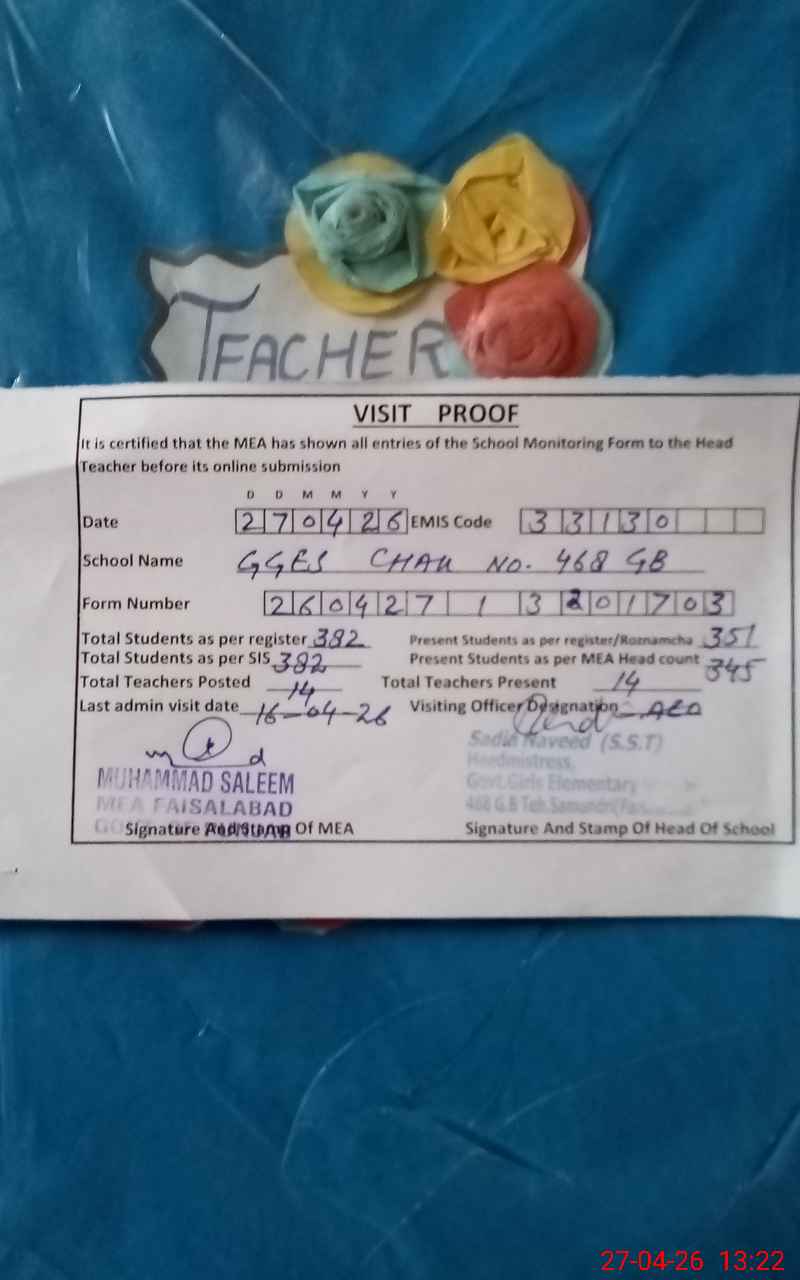 TEACHER
VISIT PROOF
It is certified that the MEA has shown all entries of the School Monitoring Form to the Head
Teacher before its online submission
D D M M Y Y
Date 270426 EMIS Code 33130
School Name GGES CHAK NO. 468 GB
Form Number 260427 1 3 201703
Total Students as per register 382 Present Students as per register/Roznamcha 351
Total Students as per SIS 382 Present Students as per MEA Head count 345
Total Teachers Posted 14 Total Teachers Present 14
Last admin visit date 16-04-26 Visiting Officer Designation AEO
MUHAMMAD SALEEM
MEA FAISALABAD
Sadia Naveed (S.S.T)
Headmistress,
Govt.Girls Elementary
468 G.B Teh.Samundri
Signature And Stamp Of MEA Signature And Stamp Of Head Of School
27-04-26 13:22